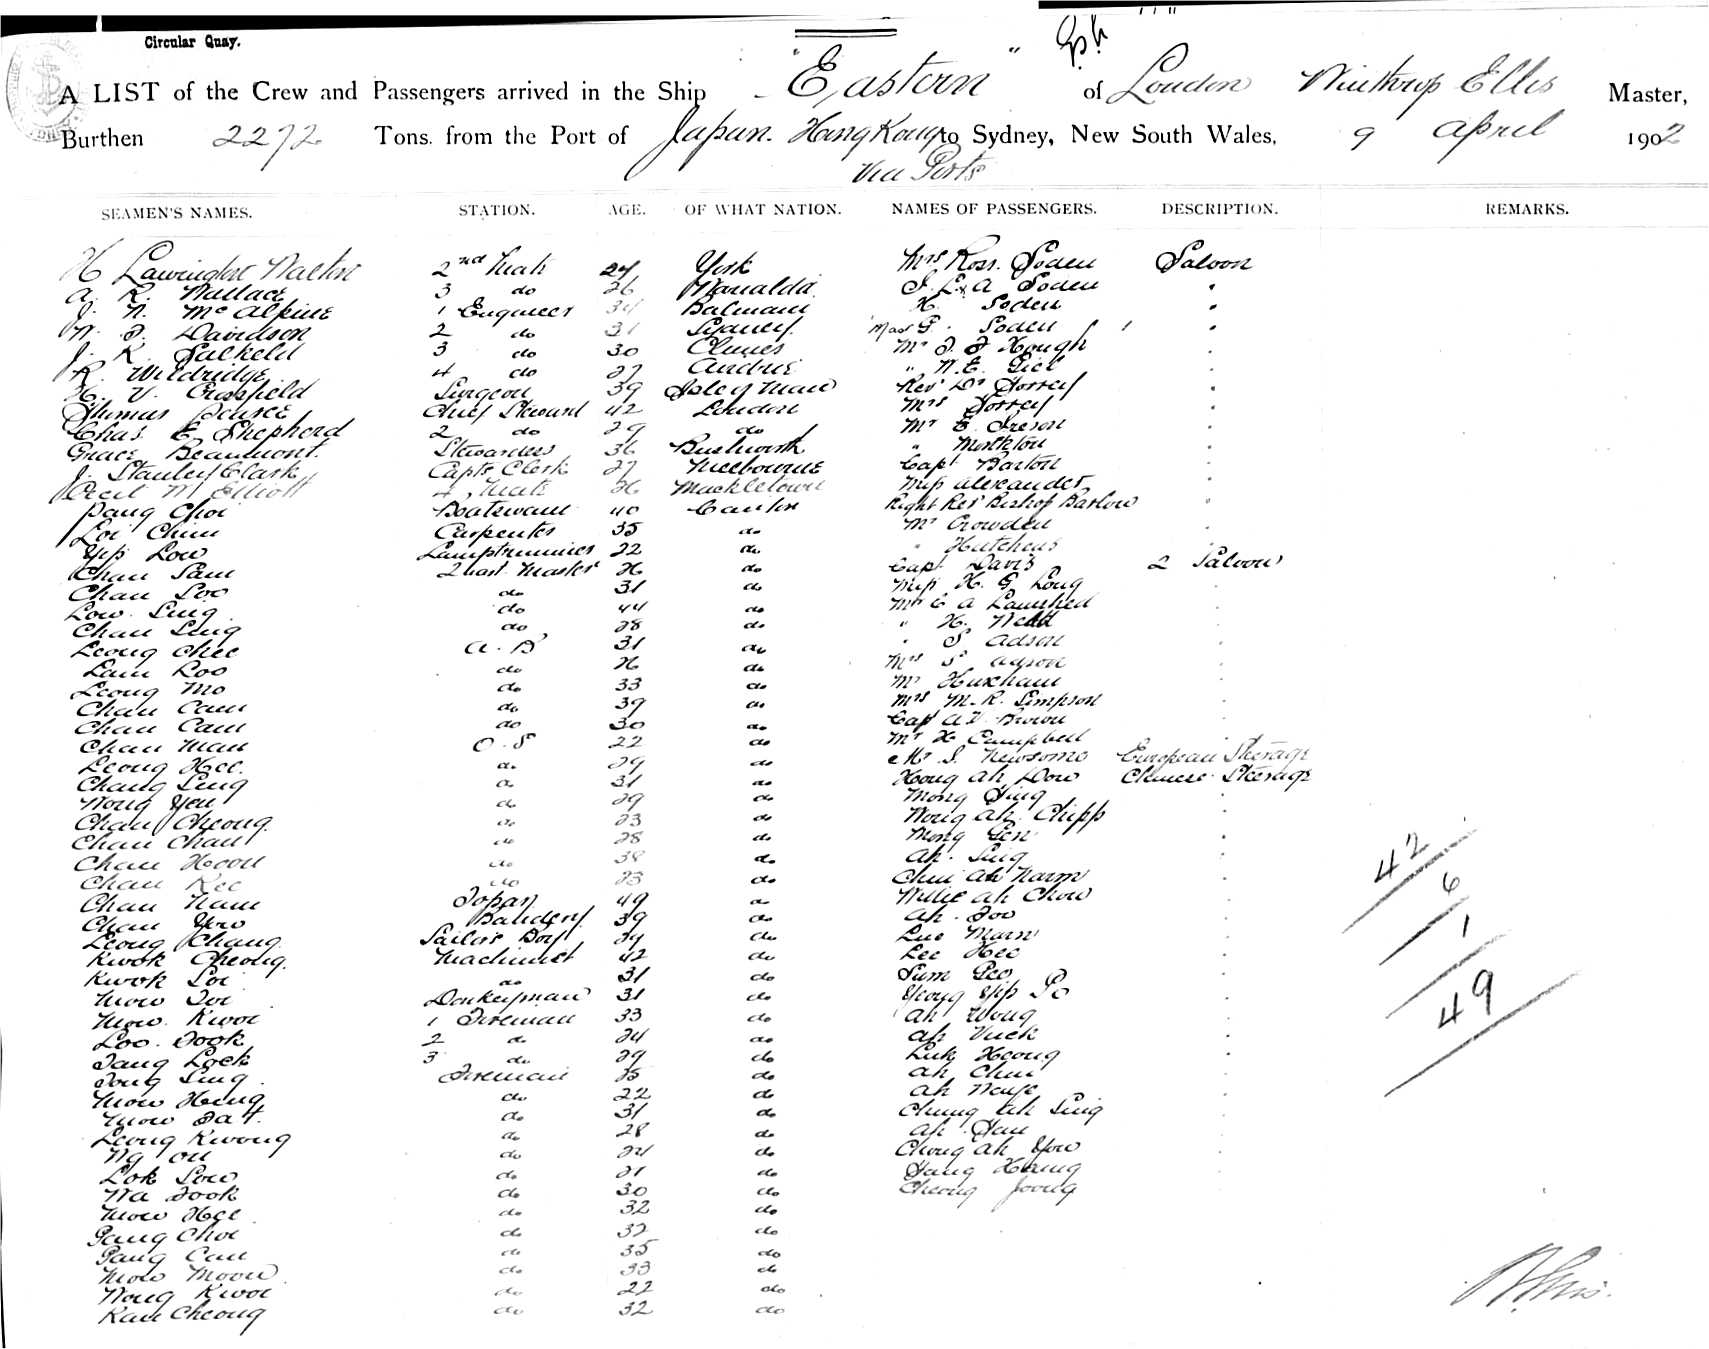 Circular Quay.
A LIST of the Crew and Passengers arrived in the Ship "Eastern" of London Winthrop Ellis Master,
Burthen 2272 Tons. from the Port of Japan. Hong Kong to Sydney, New South Wales, 9 April 1902
Via Ports
SEAMEN'S NAMES. STATION. AGE. OF WHAT NATION. NAMES OF PASSENGERS. DESCRIPTION. REMARKS.
H Walton 2nd Mate 24 York Mrs Ross. Soden Saloon
A. R. Wallace 3 do 26 Soden
J. N. McAlpine 1 Engineer 34 Balmain H. Soden
W. J. Davidson 2 do 31 Sydney. Soden
J. R. Salkeld 3 do 30 Clunes Mr J. F Hough
R. Wildridge 4 do 27 " W. E. Gill
H. V. 39 Isle of Man Revd Dr Torrey
Thomas Pearce Chief Steward 42 London Mrs Torrey
Chas E. Shepherd 2 do 29 do Mr E. Ireson
Grace Beaumont. Stewardess 36 "
J. Stanley Clark Capts Clerk 27 Melbourne Capt Barton
Cecil M Elliott 4 Mate 26 Miss Alexander
Pang Choi Boatswain 40 Canton Right Revd Bishop Barlow
Loi Chun Carpenter 35 do Mr Crowden
Yip Low Lamptrimmer 22 do " Hutchens
Chan Sam Quart. Master 26 do Capt. Davis 2 Saloon
Chan Soo do 31 do Miss H. G Long
Low Sing do 44 do Mr C A
Chan Sing do 28 do " H.
Leong Chee A. B 31 do " S Adson
Lam Loo do 26 do Mrs S Adson
Leong Mo do 33 do Mr Huxham
Chan Cam do 39 do Mrs M. R. Simpson
Chan Cam do 30 do Capt A. V. Brown
Chan Man O. S 22 do Mr H Campbell
Leong Hee. do 29 do Mr. S. Newsome European Steerage
Chang Sing do 31 do Hong Ah Low Chinese Steerage
Wong Yen do 29 do Mong Sing
Chan Cheong. do 23 do Wong Ah Chipp
Chan Chan do 28 do Mong Gen
Chan Hoon do 38 do Ah. Sing
Chan Kee do 23 do Chin Ah Narm
Chan Nam Topas 49 do Willie Ah Chow
Chan Yow 39 do Ah. Foo
Leong Chang Sailors Boy 24 do Lue Marn
Kwok Cheong. Machinist 42 do Lee Hee
Kwok Loi do 31 do Sum Geo
Mow Donkeyman 31 do Yeong Yip Po
Mow. Kwoi 1 Fireman 33 do Ah Wong
Loo. Fook 2 do 24 do Ah Vuck
Tang Lock 3 do 29 do Luk Heong
Tong Sing. Fireman 25 do Ah Chin
Mow Heng do 22 do Ah
Mow Fat. do 31 do Chung Ah Sing
Leong Kwong do 28 do Ah
Ng On do 24 do Chong Ah You
Lok Sow do 21 do
Wa Fook do 30 do Cheong
Mow Hee do 32 do
Pang Choi do 32 do
Pang Can do 35 do
Mow Moon do 33 do
Wong Kwoi do 22 do
Kan Cheong do 32 do
42
6
1
49